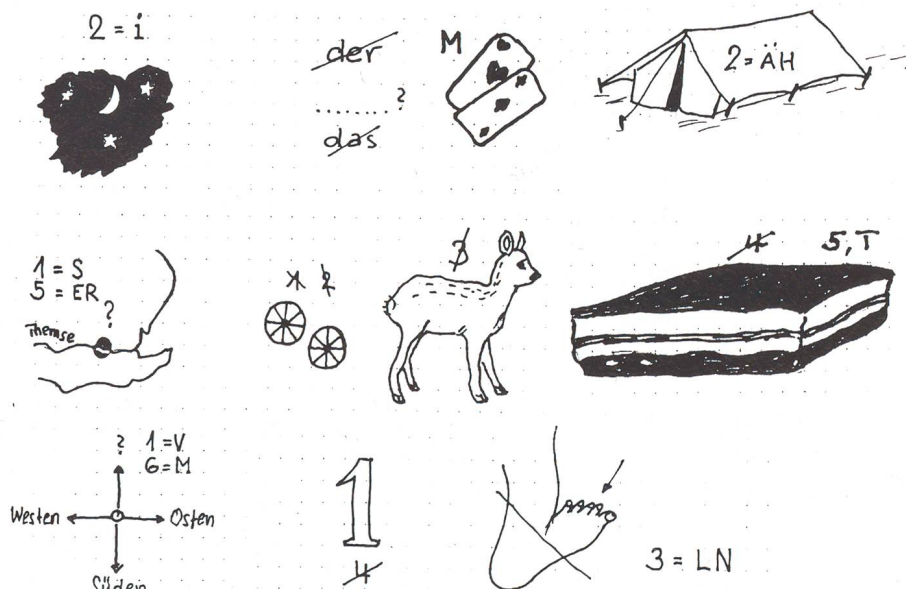 2 = i
der
..........?
das
M
2 = ÄH
1 = S
5 = ER
?
Themse
1 2
3
4 5, T
? 1 = V
6 = M
Westen Osten
Süden
1
4
3 = LN